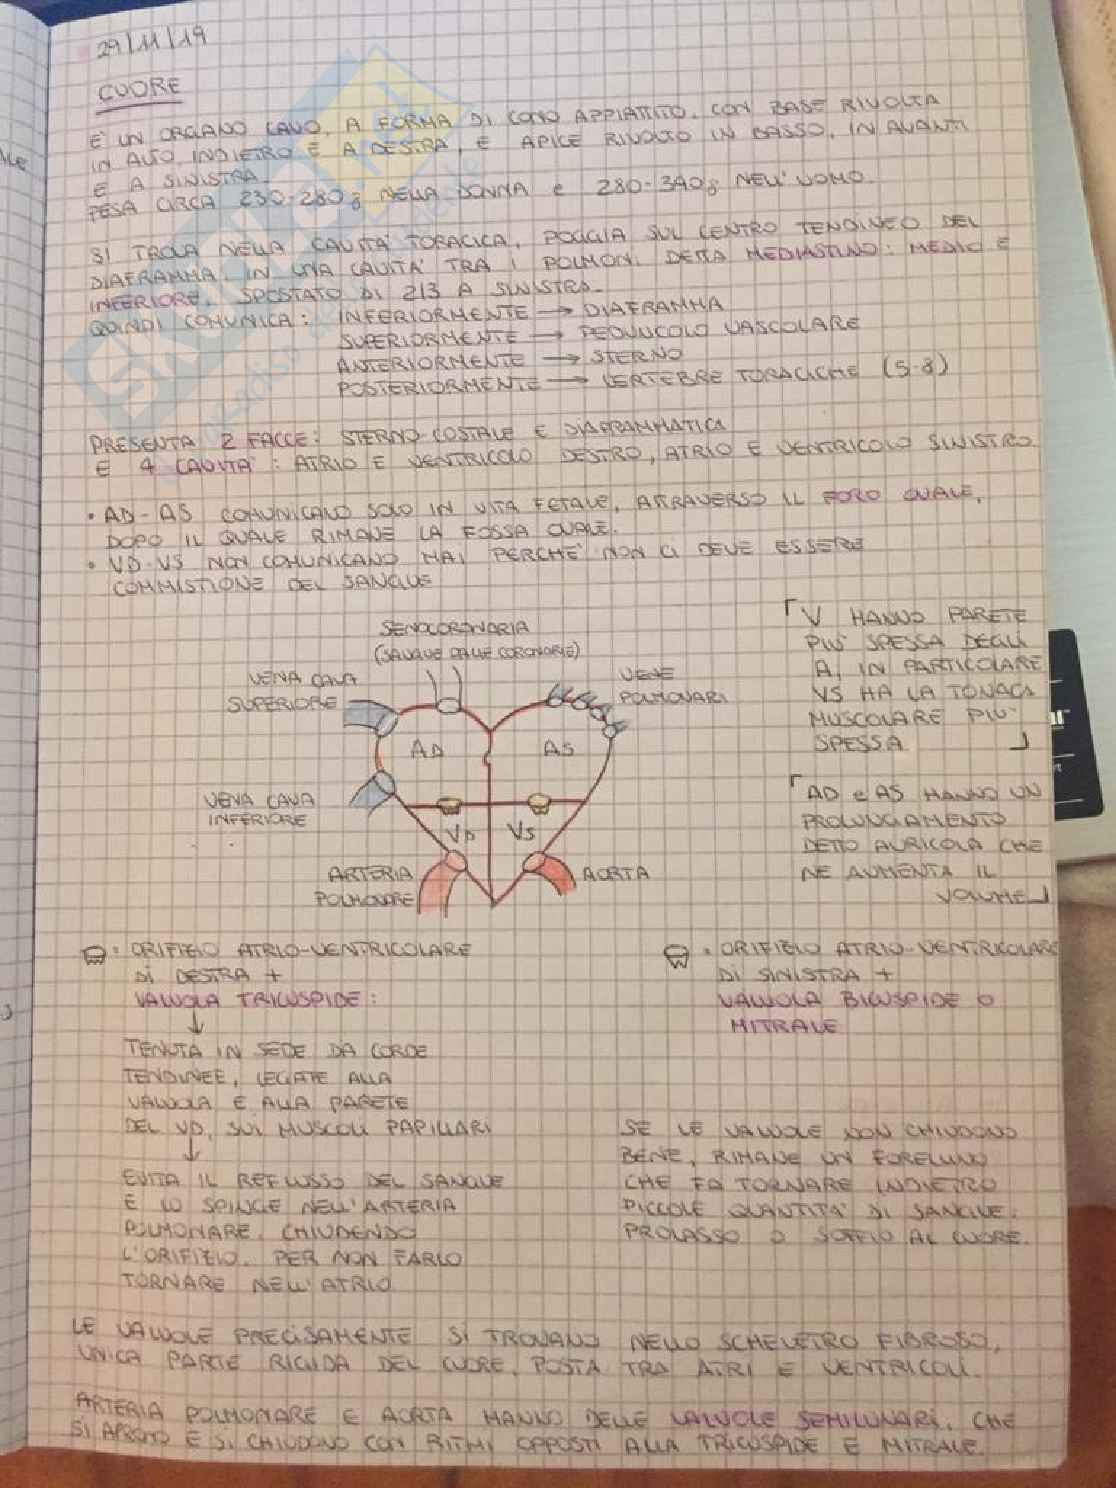 29/11/19
CUORE
È UN ORGANO CAVO, A FORMA DI CONO APPIATTITO, CON BASE RIVOLTA
IN ALTO, INDIETRO E A DESTRA, E APICE RIVOLTO IN BASSO, IN AVANTI
E A SINISTRA.
PESA CIRCA 230-280g NELLA DONNA e 280-340g NELL'UOMO.
SI TROVA NELLA CAVITA' TORACICA, POGGIA SUL CENTRO TENDINEO DEL
DIAFRAMMA, IN UNA CAVITA' TRA I POLMONI DETTA MEDIASTINO: MEDIO E
INFERIORE, SPOSTATO DI 2/3 A SINISTRA.
QUINDI COMUNICA: INFERIORMENTE → DIAFRAMMA
SUPERIORMENTE → PEDUNCOLO VASCOLARE
ANTERIORMENTE → STERNO
POSTERIORMENTE → VERTEBRE TORACICHE (5-8)
PRESENTA 2 FACCE: STERNO-COSTALE E DIAFRAMMATICA
E 4 CAVITA': ATRIO E VENTRICOLO DESTRO, ATRIO E VENTRICOLO SINISTRO
• AD-AS COMUNICANO SOLO IN VITA FETALE, ATTRAVERSO IL FORO OVALE,
DOPO IL QUALE RIMANE LA FOSSA OVALE.
• VD-VS NON COMUNICANO MAI PERCHE' NON CI DEVE ESSERE
COMMISTIONE DEL SANGUE
SENOCORONARIA
(SANGUE DALLE CORONARIE)
VENA CAVA
SUPERIORE
VENE
POLMONARI
AD
AS
VENA CAVA
INFERIORE
VD
VS
ARTERIA
POLMONARE
AORTA
V HANNO PARETE
PIU' SPESSA DEGLI
A, IN PARTICOLARE
VS HA LA TONACA
MUSCOLARE PIU'
SPESSA
AD e AS HANNO UN
PROLUNGAMENTO
DETTO AURICOLA CHE
NE AUMENTA IL
VOLUME
: ORIFIZIO ATRIO-VENTRICOLARE
DI DESTRA +
VALVOLA TRICUSPIDE:
↓
TENUTA IN SEDE DA CORDE
TENDINEE, LEGATE ALLA
VALVOLA E ALLA PARETE
DEL VD, SUI MUSCOLI PAPILLARI
↓
EVITA IL REFLUSSO DEL SANGUE
E LO SPINGE NELL'ARTERIA
POLMONARE, CHIUDENDO
L'ORIFIZIO, PER NON FARLO
TORNARE NELL'ATRIO
: ORIFIZIO ATRIO-VENTRICOLARE
DI SINISTRA +
VALVOLA BICUSPIDE O
MITRALE
SE LE VALVOLE NON CHIUDONO
BENE, RIMANE UN FORELLINO
CHE FA TORNARE INDIETRO
PICCOLE QUANTITA' DI SANGUE:
PROLASSO O SOFFIO AL CUORE.
LE VALVOLE PRECISAMENTE SI TROVANO NELLO SCHELETRO FIBROSO,
UNICA PARTE RIGIDA DEL CUORE, POSTA TRA ATRI E VENTRICOLI.
ARTERIA POLMONARE E AORTA HANNO DELLE VALVOLE SEMILUNARI, CHE
SI APRONO E SI CHIUDONO CON RITMI OPPOSTI ALLA TRICUSPIDE E MITRALE.